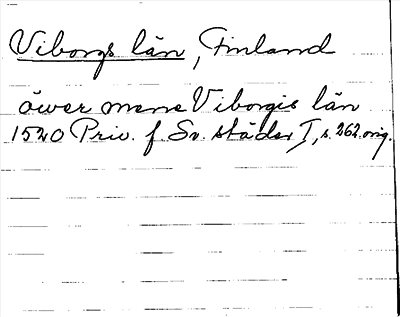 Viborgs län, Finland
över mene Viborgis län
1520 Priv. f. Sv. städer I, s. 262 orig.